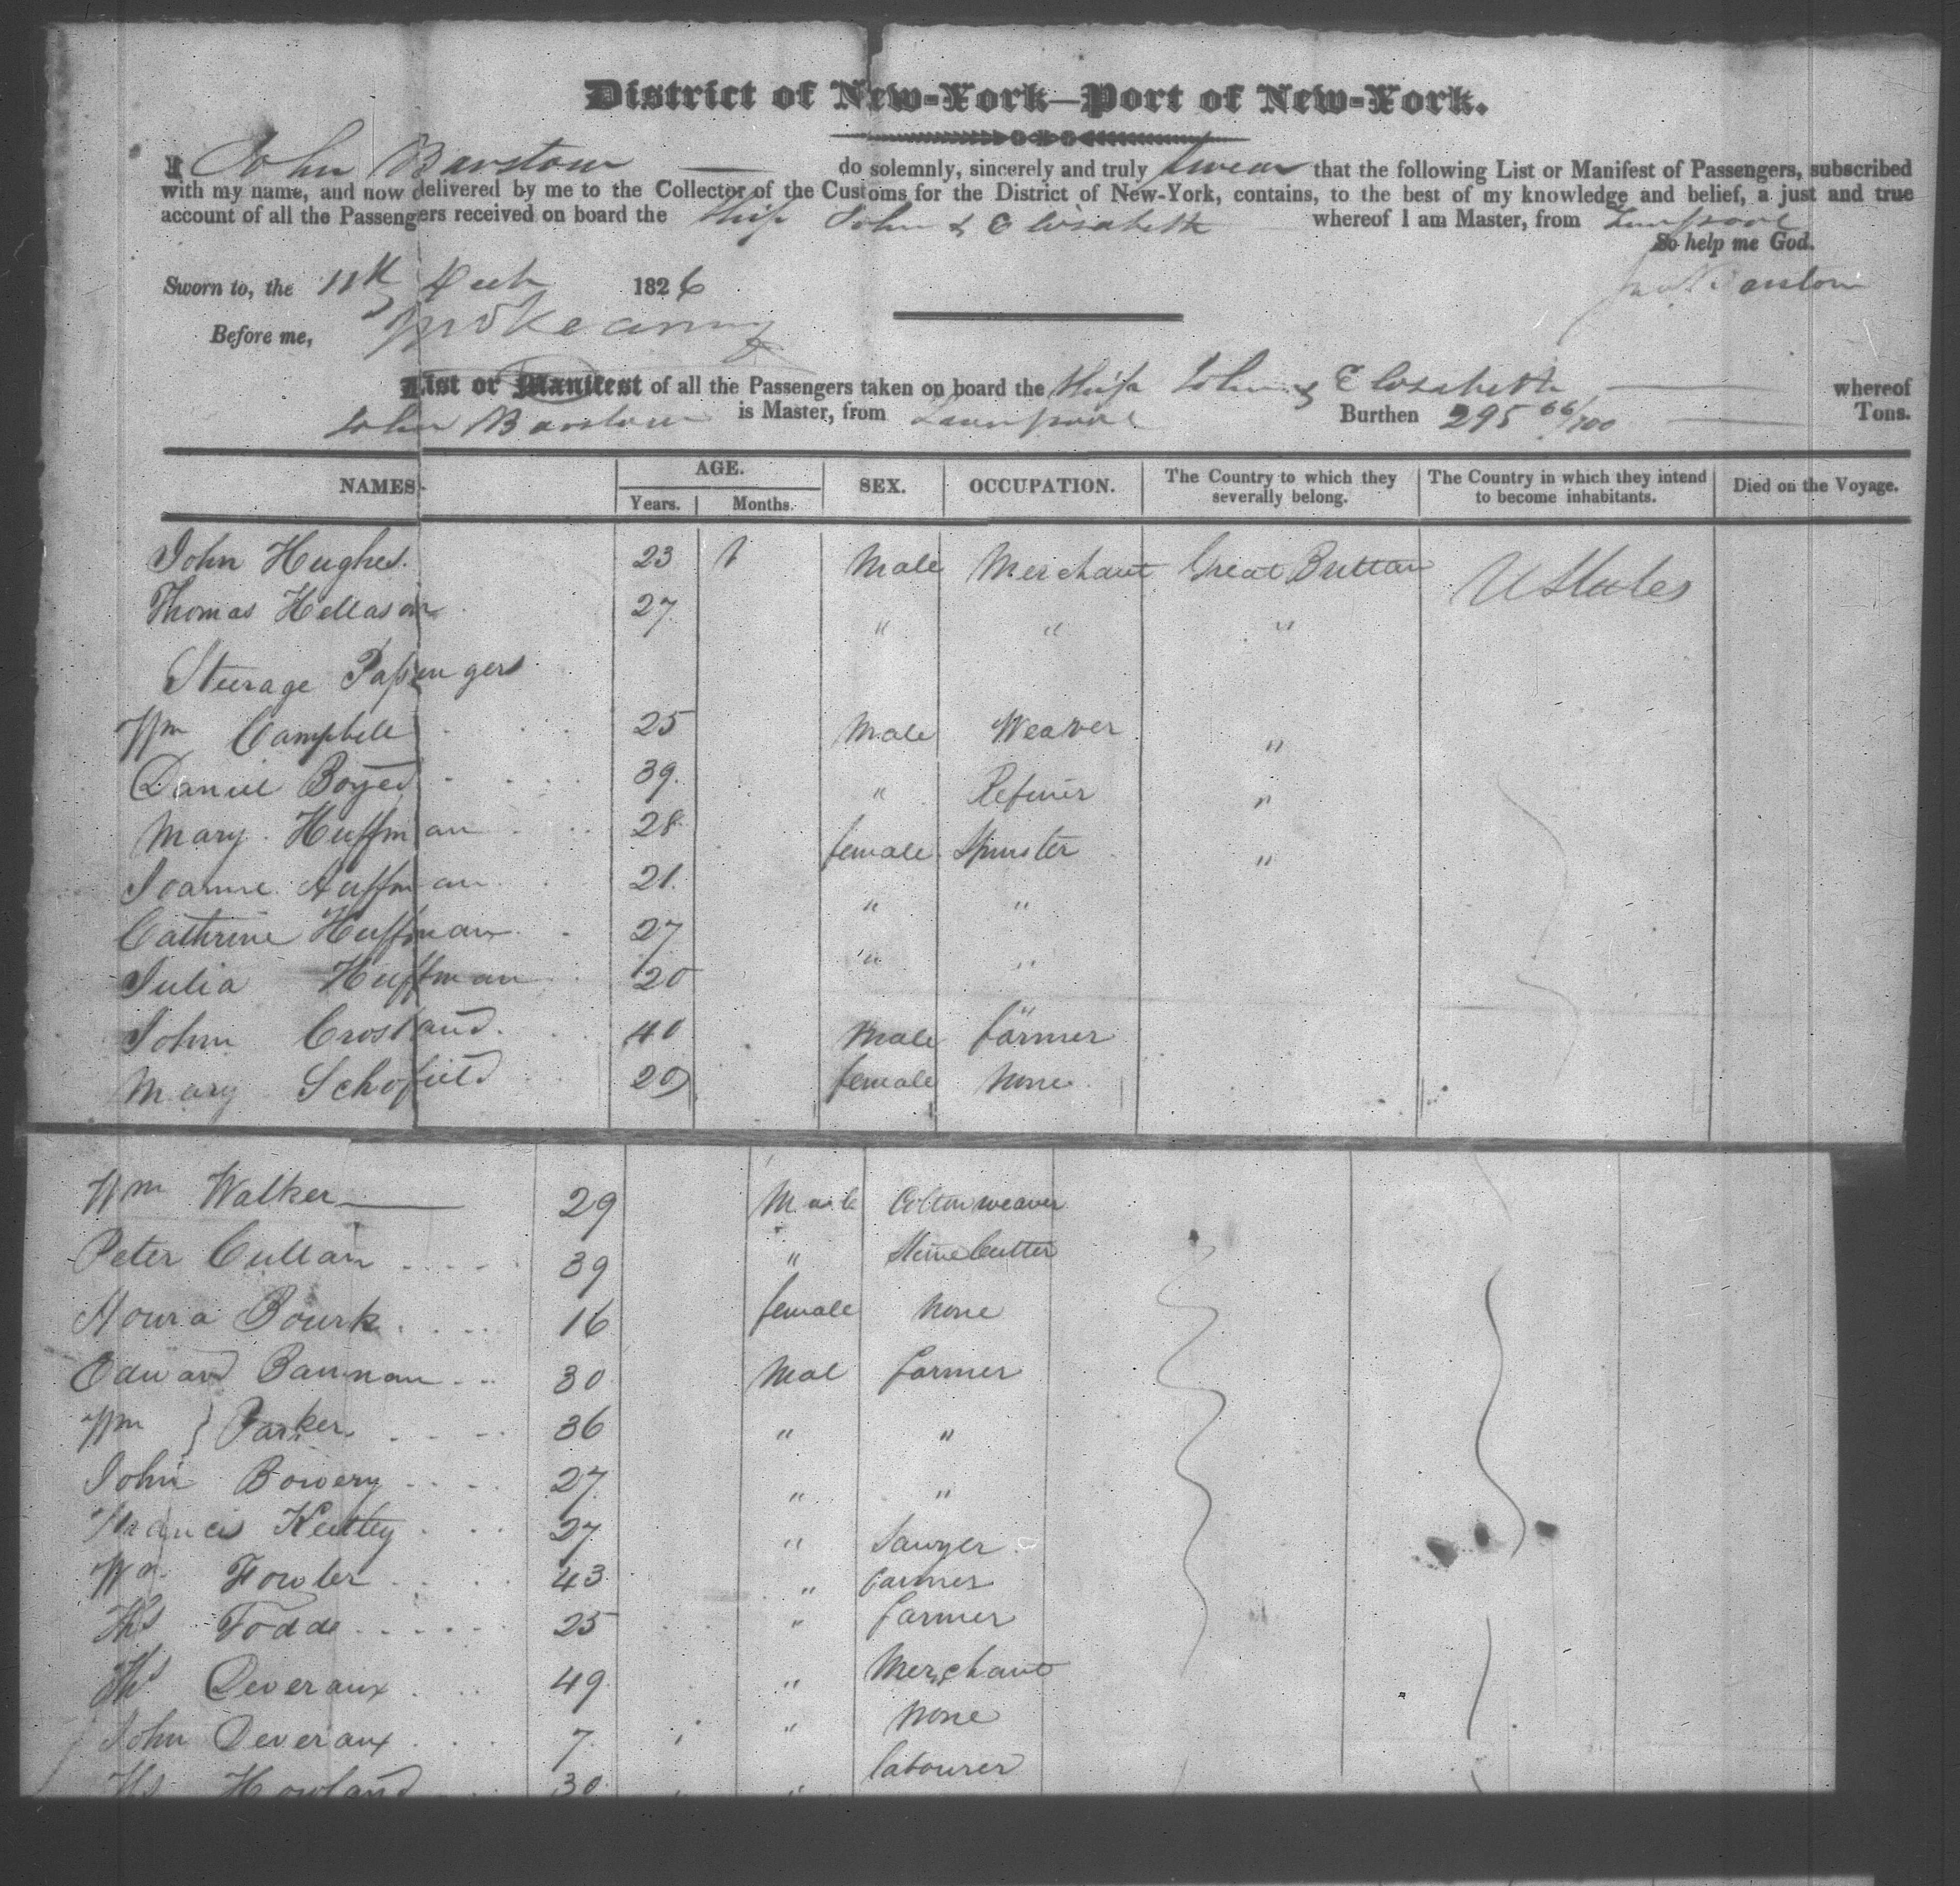 District of New-York—Port of New-York.
I John Barstow do solemnly, sincerely and truly swear that the following List or Manifest of Passengers, subscribed
with my name, and now delivered by me to the Collector of the Customs for the District of New-York, contains, to the best of my knowledge and belief, a just and true
account of all the Passengers received on board the Ship John & Elisabeth whereof I am Master, from Liverpool
So help me God.
Sworn to, the 11th 1826 Jno Barstow
Before me,
List or Manifest of all the Passengers taken on board the Ship John & Elisabeth whereof
John Barstow is Master, from Liverpool Burthen 295 66/100 Tons.
NAMES. AGE. Years. Months. SEX. OCCUPATION. The Country to which they severally belong. The Country in which they intend to become inhabitants. Died on the Voyage.
John Hughes. 23 Male Merchant Great Brittan U States
Thomas Hellason 27 " " "
Steerage Passengers
Wm Campbell 25 Male Weaver "
Daniel Boyed 39. " Refiner "
Mary Huffman 28 female Spinster "
Joanne Huffman 21. " "
Cathrine Huffman 27 " "
Julia Huffman 20 "
John Crosland. 40 Male farmer
Mary Schofield 29 female None
Wm Walker 29 Male Cotton weaver
Peter Cullan 39 " Stone Cutter
Noura Bourk 16 female None
Edward Bannan 30 Mal farmer
Wm } Parker. 36 " "
John Bowery 27 " "
Francis Keitley 27 " Sawyer
Wm Fowler 43 " farmer
Ths Todde 25 " farmer
Ths Deveraux 49 " Merchant
John Deveraux 7 " None
Ths Howland 30 " labourer